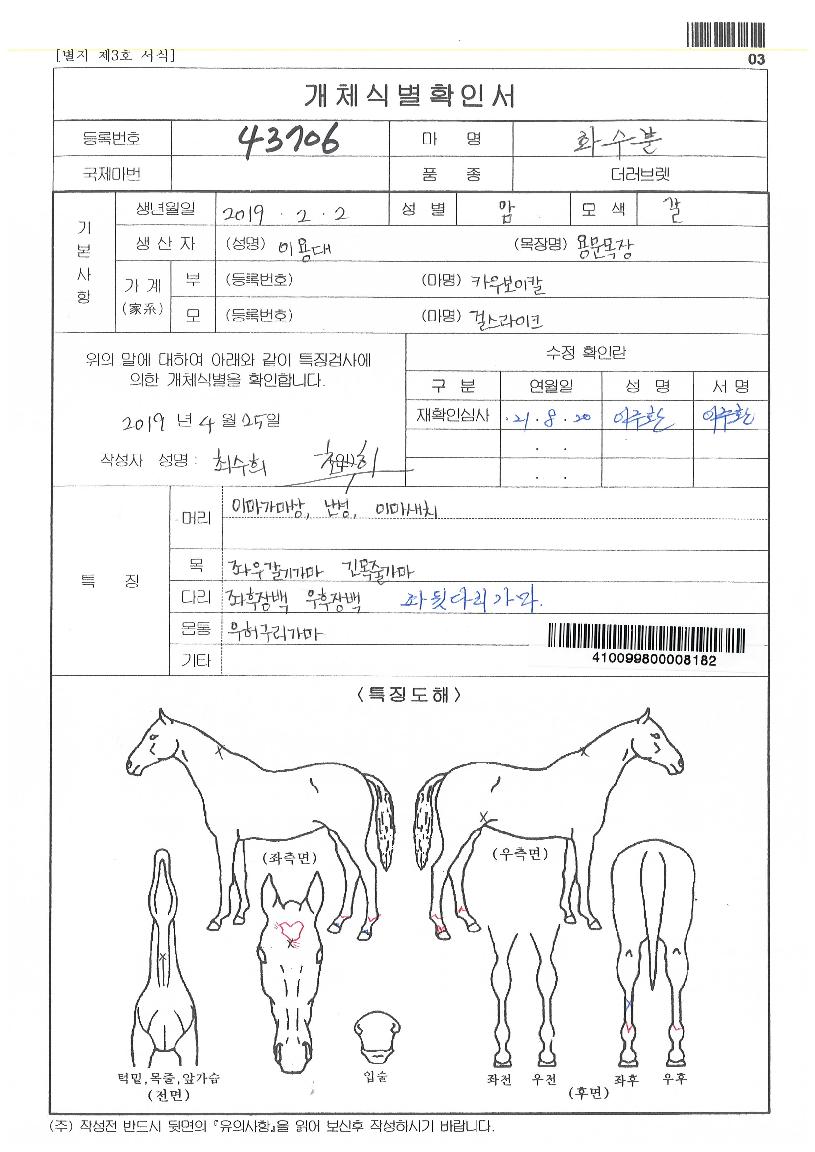 [별지 제3호 서식]
03
개체식별확인서
등록번호 43706 마 명 화수분
국제마번 품 종 더러브렛
기본사항
생년월일 2019 . 2 . 2 성 별 암 모 색 갈
생 산 자 (성명) 이용대 (목장명) 용문목장
가 계 (家系) 부 (등록번호) (마명) 카우보이칼
모 (등록번호) (마명) 걸스라이크
위의 말에 대하여 아래와 같이 특징검사에
의한 개체식별을 확인합니다.
2019 년 4 월 25일
작성사 성명 : 최수희
수정 확인란
구 분 연월일 성 명 서 명
재확인심사 .21 . 8 . 20 이주환 이주환
. .
. .
특 징
머리 이마가마상, 난성, 이마새치
목 좌우갈기가마 긴목줄가마
다리 좌후장백 우후장백 좌뒷다리가마.
몸통 우허구리가마
기타
410099800008182
<특징도해>
(좌측면) (우측면)
턱밑,목줄,앞가슴
(전면)
입술
좌전 우전 좌후 우후
(후면)
(주) 작성전 반드시 뒷면의 『유의사항』을 읽어 보신후 작성하시기 바랍니다.